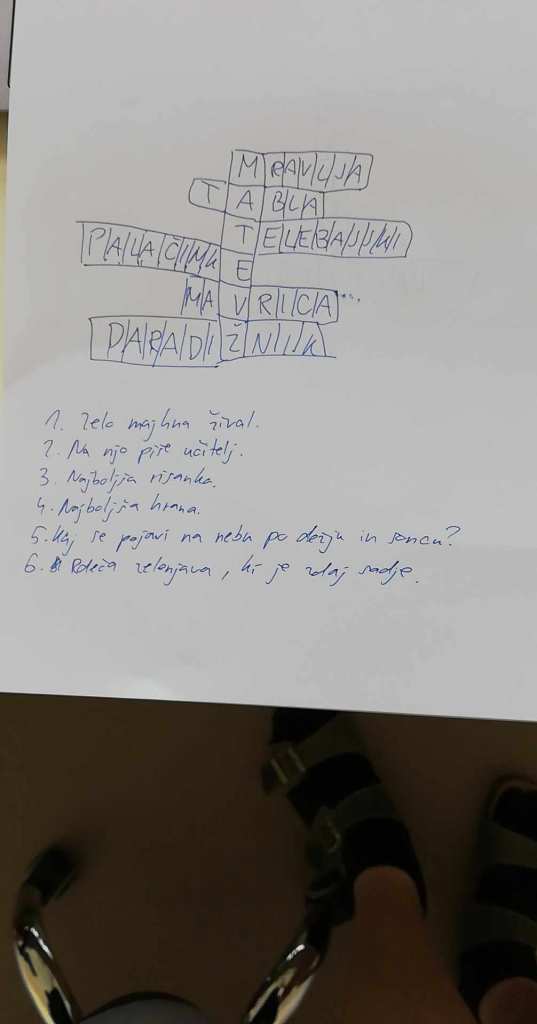 MRAVLJA
TABLA
TELEBAJSKI
PALAČINKE
MAVRICA...
PARADIŽNIK
1. Zelo majhna žival.
2. Na njo piše učitelj.
3. Najboljša risanka.
4. Najboljša hrana.
5. Kaj se pojavi na nebu po dežju in soncu?
6. Rdeča zelenjava, ki je zdaj sadje.